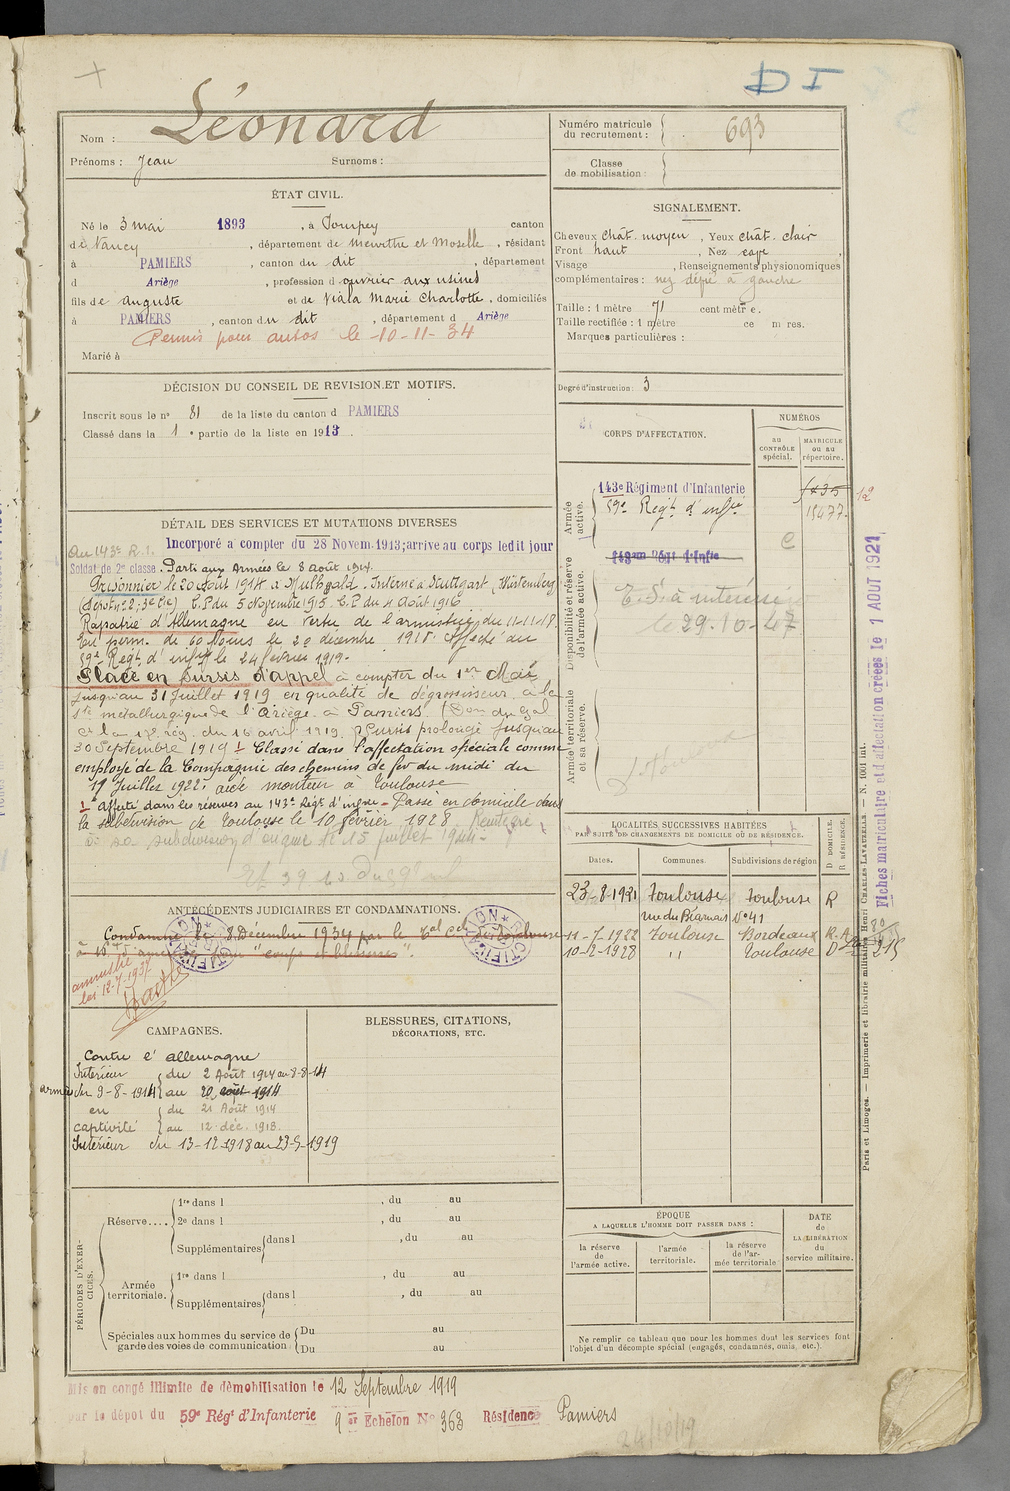 D I
Nom : Léonard
Prénoms : Jean Surnoms :
Numéro matricule du recrutement : 693
Classe de mobilisation :
ÉTAT CIVIL.
Né le 3 mai 1893, à Pompey canton
de Nancy, département de meurthe et Moselle, résidant
à PAMIERS, canton du dit, département
d Ariège, profession d ouvrier aux usines
fils de auguste et de Viala Marie Charlotte, domiciliés
à PAMIERS, canton du dit, département d Ariège
Permis pour autos le 10-11-34
Marié à
SIGNALEMENT.
Cheveux chât. moyen, Yeux chât. clair
Front haut, Nez
Visage , Renseignements physionomiques
complémentaires : nez dévié à gauche
Taille : 1 mètre 71 centimètre.
Taille rectifiée : 1 mètre ce m res.
Marques particulières :
Degré d'instruction : 3
DÉCISION DU CONSEIL DE REVISION ET MOTIFS.
Inscrit sous le n° 81 de la liste du canton d PAMIERS
Classé dans la 1 e partie de la liste en 1913.
DÉTAIL DES SERVICES ET MUTATIONS DIVERSES
Incorporé à compter du 28 Novem. 1913; arrivé au corps ledit jour
au 143e R.I.
Soldat de 2e classe. Parti aux Armées le 8 août 1914.
Prisonnier le 20 août 1914 à Mulhgald. Interné à Stuttgart (Würtemberg)
C.P. du 5 Novembre 1915. C.P. du 4 Août 1916
Rapatrié d'Allemagne en vertu de l'armistice du 11-11-18.
En perm. de 60 jours le 20 décembre 1918. Affecté au
59e Régt d'infie le 24 février 1919.
Placé en sursis d'appel à compter du 1er Mai
jusqu'au 31 Juillet 1919 en qualité de dégrossisseur à la
Sté métallurgique de l'Ariège à Pamiers. (Don du Gal
Ct la 17e rég. du 16 avril 1919. Sursis prolongé jusqu'au
30 Septembre 1919 1 Classé dans l'affectation spéciale comme
employé de la Compagnie des chemins de fer du midi du
19 Juillet 1922: aide monteur à Toulouse
1 affecté dans les réserves au 143e Régt d'infie - Passé en domicile dans
la subdivision de Toulouse le 10 février 1928. Réintégré
sa subdivision d'origine le 15 juillet
CORPS D'AFFECTATION.
NUMÉROS
au CONTRÔLE spécial.
MATRICULE ou au répertoire.
Armée active.
143e Régiment d'Infanterie
59e Régt d'infie
12
15477
Disponibilité et réserve de l'armée active.
143em Régt d'Infie
le 29.10-47
Armée territoriale et sa réserve.
LOCALITÉS SUCCESSIVES HABITÉES
PAR SUITE DE CHANGEMENTS DE DOMICILE OU DE RÉSIDENCE.
Dates. Communes. Subdivisions de région D DOMICILE. R RÉSIDENCE.
23-8-1921 Toulouse Toulouse R
rue du Béarnais N° 41
11-7-1922 Toulouse Bordeaux R.
10-2-1928 " Toulouse D
215
ANTÉCÉDENTS JUDICIAIRES ET CONDAMNATIONS.
Condamné le 8 Décembre 1934 par le Cel de Toulouse
à "coups et blessures".
amnistié
loi 12-7-1937
CAMPAGNES.
Contre l'allemagne
Intérieur du 2 Août 1914 au 8-8-14
armées du 9-8-1914 au 20 août 1914
en captivité du 21 Août 1914
au 12 déc. 1918.
Intérieur du 13-12-1918 au 23-5-1919
BLESSURES, CITATIONS,
DÉCORATIONS, ETC.
PÉRIODES D'EXERCICES.
Réserve.... 1re dans l , du au
2e dans l , du au
Supplémentaires dans l , du au
au
Armée territoriale. 1re dans l , du au
Supplémentaires dans l , du au
au
Spéciales aux hommes du service de garde des voies de communication. Du au
Du au
ÉPOQUE
A LAQUELLE L'HOMME DOIT PASSER DANS :
la réserve de l'armée active.
l'armée territoriale.
la réserve de l'armée territoriale
DATE de LA LIBÉRATION du service militaire.
Ne remplir ce tableau que pour les hommes dont les services font
l'objet d'un décompte spécial (engagés, condamnés, omis, etc.).
Mis en congé illimité de démobilisation le 12 Septembre 1919
par le dépôt du 59e Régt d'Infanterie 9 er Echelon N° 363 Résidence Pamiers
24/10/19
Paris et Limoges. — Imprimerie et librairie militaires Henri CHARLES-LAVAUZELLE. — N. 1001 int.
Fiches matriculaire et d'affectation créées le 1 AOUT 1921